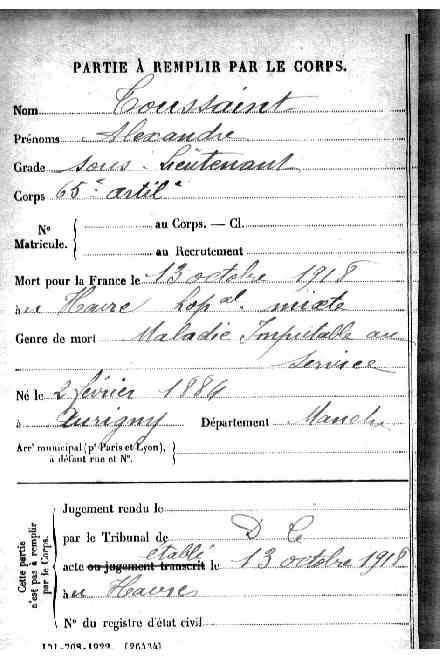 PARTIE À REMPLIR PAR LE CORPS.
Nom Toussaint
Prénoms Alexandre
Grade sous-Lieutenant
Corps 65e artile
No Matricule. { au Corps. — Cl.
au Recrutement
Mort pour la France le 13 octobre 1918
à u Havre hopal. mixte
Genre de mort Maladie Imputable au
service
Né le 2 février 1884
à Aurigny Département Manche
Arrt municipal (pr Paris et Lyon),
à défaut rue et No.
Cette partie n'est pas à remplir par le Corps.
Jugement rendu le
par le Tribunal de D C
établé
acte ou jugement transcrit le 13 octobre 1918
à u Havre
No du registre d'état civil